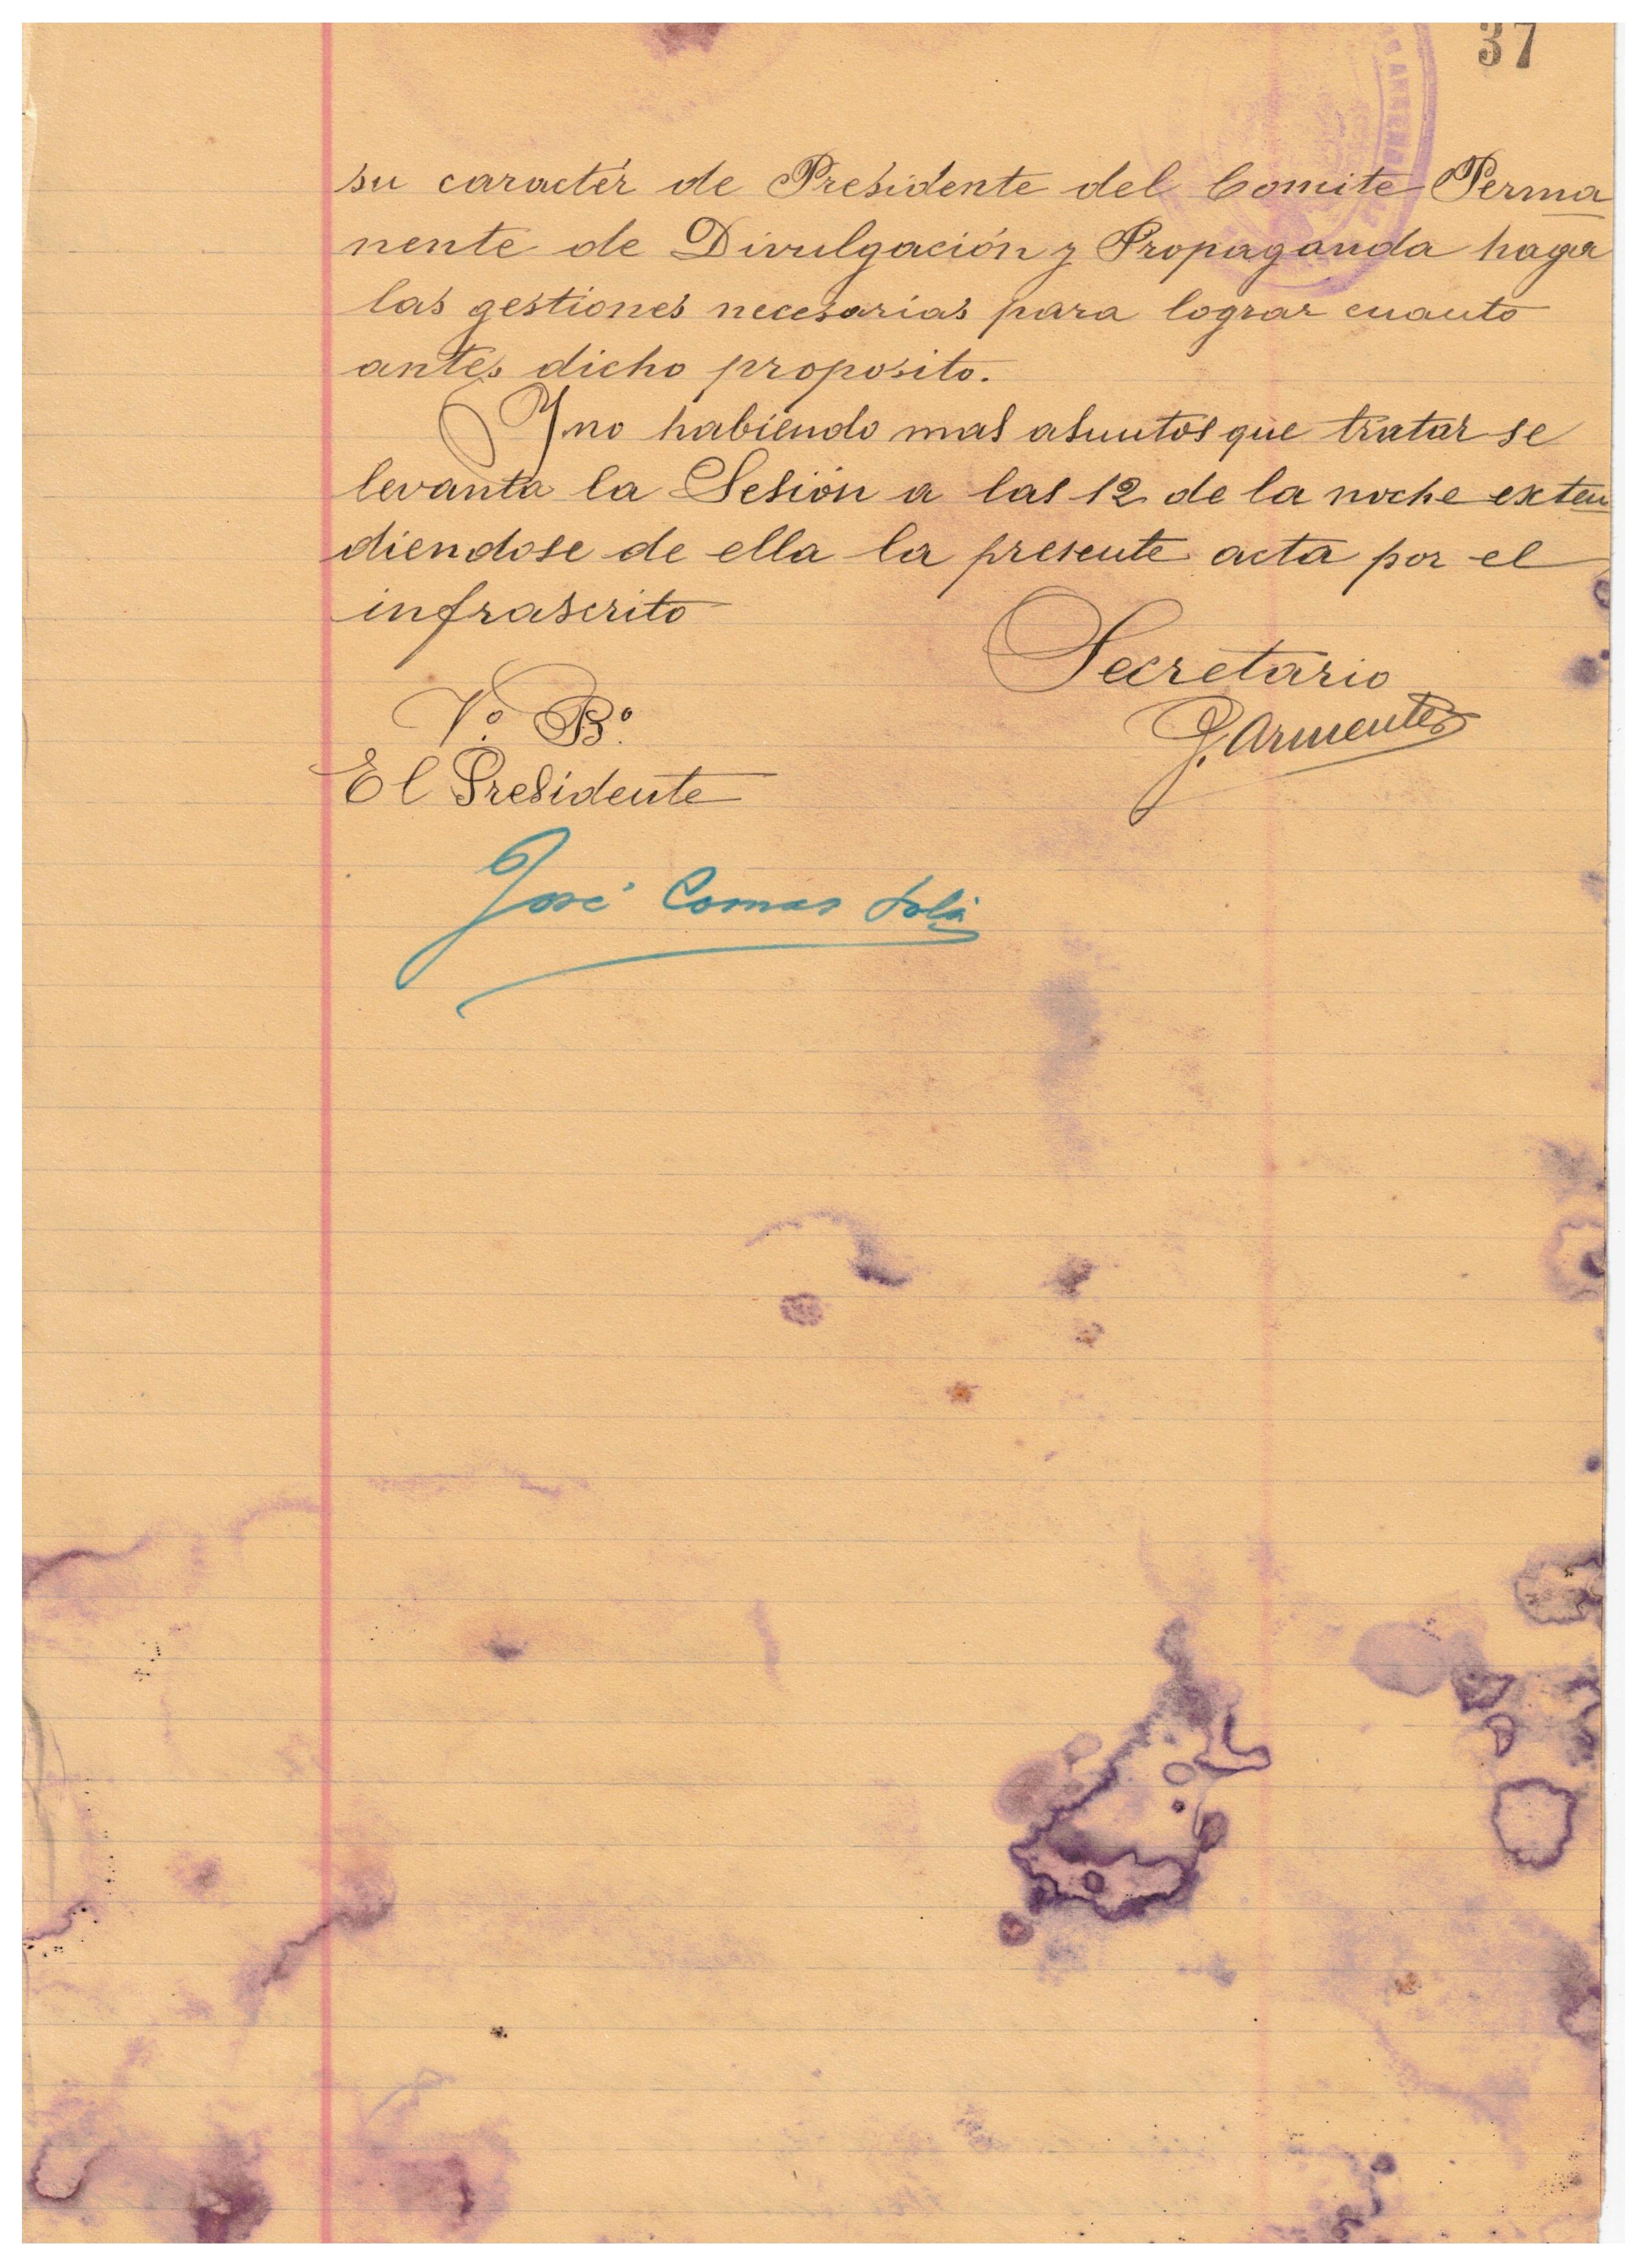 37
su caractér de Presidente del Comite Perma
nente de Divulgación y Propaganda haga
las gestiones necesarias para lograr cuanto
antes dicho proposito.
Y no habiendo mas asuntos que tratar se
levanta la Sesión a las 12 de la noche exten
diendose de ella la presente acta por el
infrascrito
Secretario
J. Armenter
Vº Bº
El Presidente
José Comas Solá